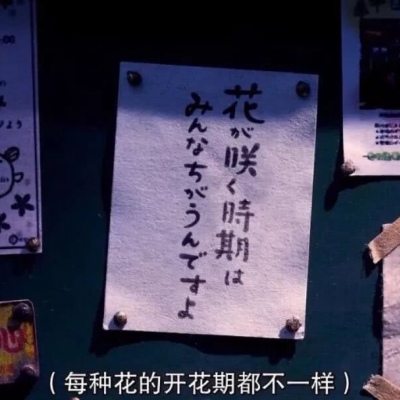 花が咲く時期は
みんなちがうんですよ
（每种花的开花期都不一样）